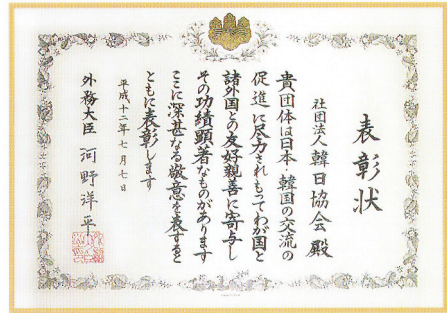 表彰状
社団法人韓日協会殿
貴団体は日本・韓国の交流の
促進に尽力されもってわが国と
諸外国との友好親善に寄与し
その功績顕著なものがあります
ここに深甚なる敬意を表すると
ともに表彰します
平成十二年七月七日
外務大臣 河野洋平